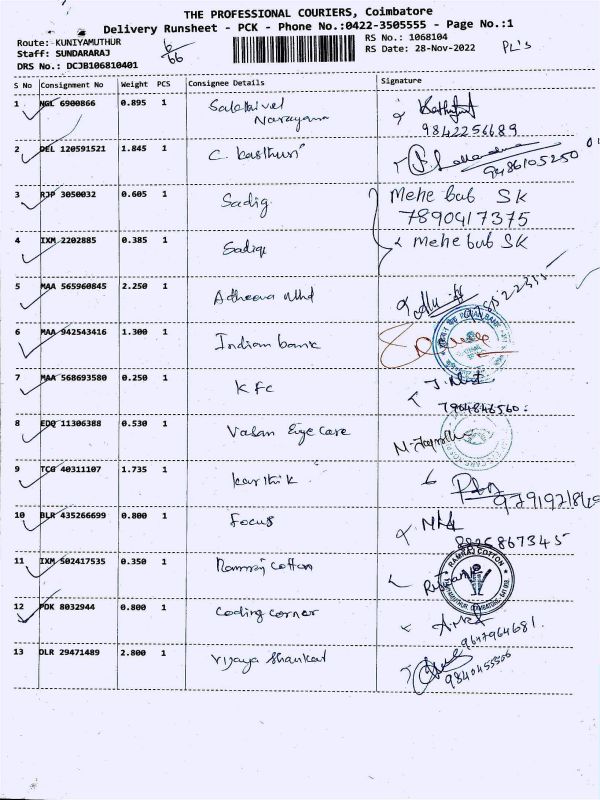 THE PROFESSIONAL COURIERS, Coimbatore
Delivery Runsheet - PCK - Phone No.:0422-3505555 - Page No.:1
Route: KUNIYAMUTHUR
RS No.: 1068104
Staff: SUNDARARAJ
RS Date: 28-Nov-2022
PL's
DRS No.: DCJB106810401
66
S No Consignment No Weight PCS Consignee Details Signature
1 NGL 6900866 0.895 1 Sakthivel
Narayana
9842256689
2 DEL 120591521 1.845 1 C. Kasthuri
9486105250
3 RJP 3050032 0.605 1 Sadiq Mehe bub SK
7890417375
4 IXM 2202885 0.385 1 Sadiq Mehe bub SK
5 MAA 565960845 2.250 1 Adheeva
6 MAA 942543416 1.300 1 Indian bank
7 MAA 568693580 0.250 1 KFC
7904846560
8 EDQ 11306388 0.530 1 Vasan Eye Care
9 TCG 40311107 1.735 1 Karthik
10 BLR 435266699 0.800 1 Focus
867345
11 IXM 502417535 0.350 1 Ramraj Cotton
RAMRAJ COTTON
12 PDK 8032944 0.800 1 Coding corner
9647964681.
13 DLR 29471489 2.800 1 Vijaya Shankar
9840455506